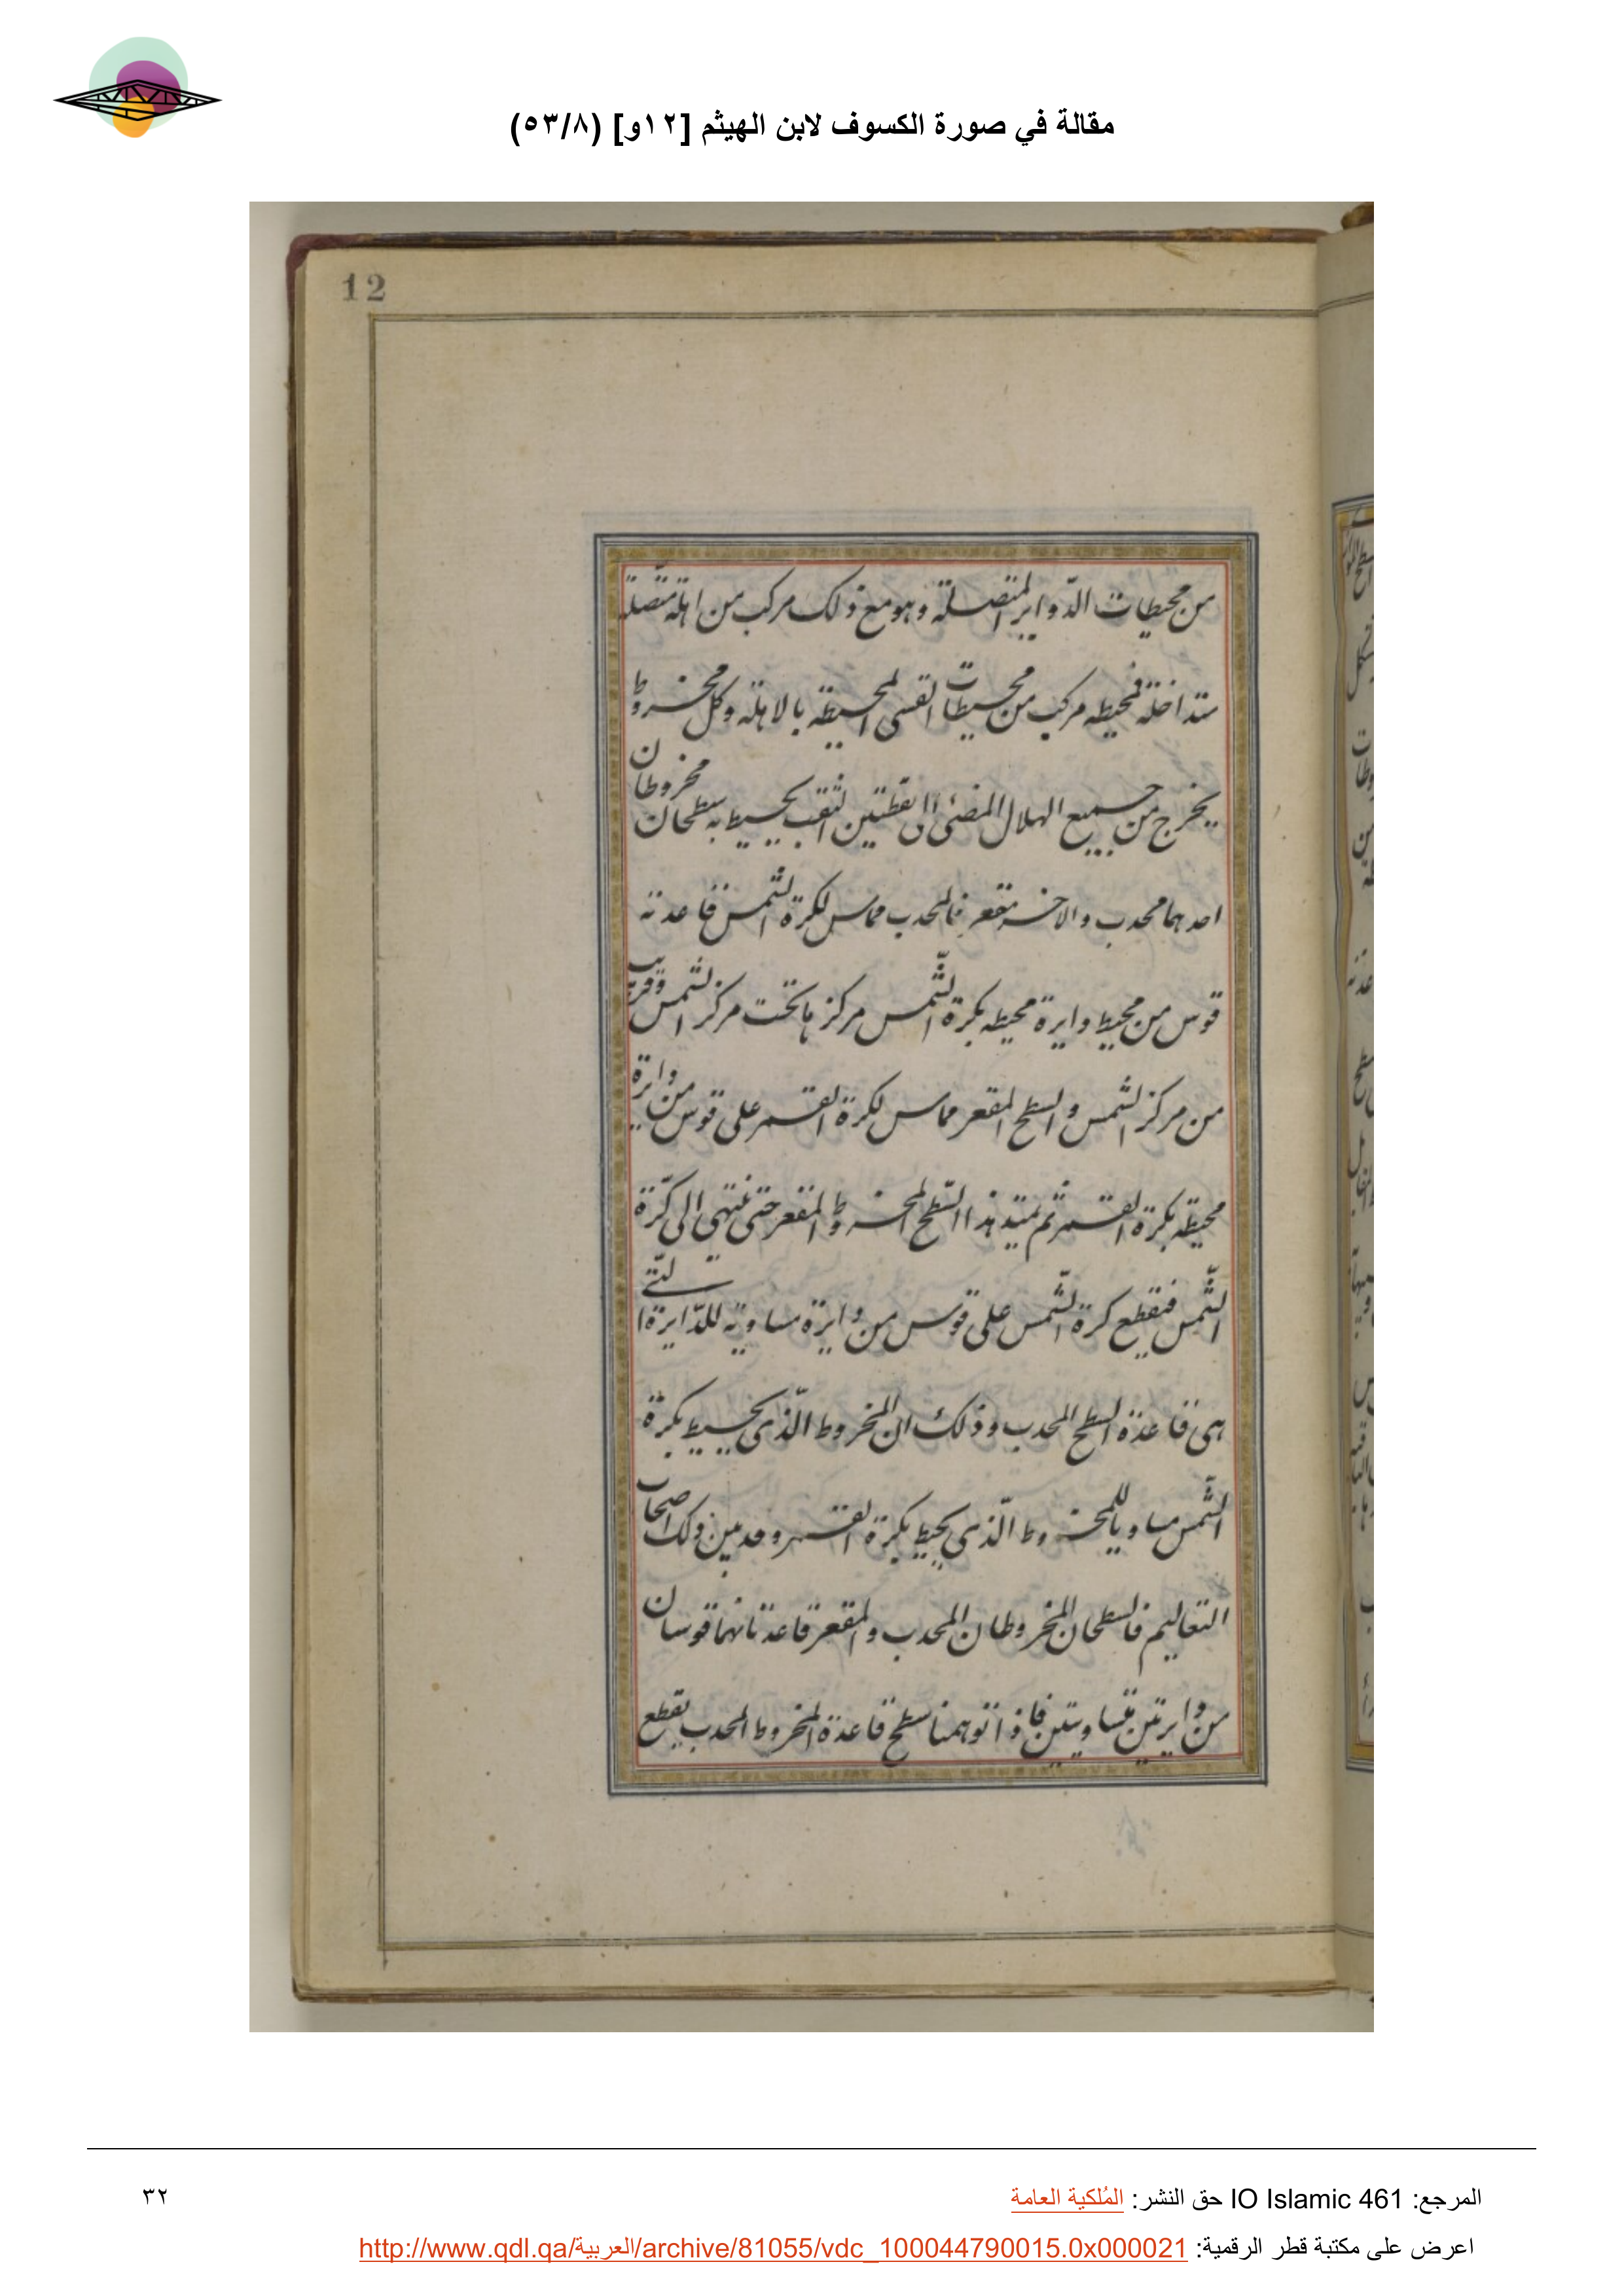 مقالة في صورة الكسوف لابن الهيثم [١٢و] (٥٣/٨)
12
من محيطات الدّواير المتصلة وهو مع ذلك مركب من اهلة متّصلة
متداخلة فمحيطه مركب من محيطات القسى المحيطة بالاهلة وكل مخروط
يخرج من جميع الهلال المضئ الى نقطتين الثقب يحيط به سطحان مخروطان
احدهما محدب والاخر مقعر فالمحدب مماس لكرة الشمس قاعدته
قوس من محيط دايرة محيطه بكرة الشّمس مركزها تحت مركز الشمس وقريب
من مركز الشمس والسطح المقعر مماس لكرة القمر على قوس من دايرة
محيطة بكرة القمر ثم يمتد هذا السّطح المخروط المقعر حتى ينتهى الى كرّة
الشّمس فيقطع كرة الشّمس على قوس من دايرة مساوية للدّايرة التى
هى قاعدة السطح المحدب وذلك ان المخروط الّذى يحيط بكرة
الشّمس مساويا للمخروط الّذى يحيط بكرة القمر وقد بين ذلك اصحاب
التعاليم فالسطحان المخروطان المحدب والمقعر قاعدتانهما قوسان
من دايرتين متساويتين فاذا توهمنا سطح قاعدة المخروط المحدب يقطع
المرجع: IO Islamic 461 حق النشر: المُلكية العامة
٣٢
اعرض على مكتبة قطر الرقمية: http://www.qdl.qa/العربية/archive/81055/vdc_100044790015.0x000021